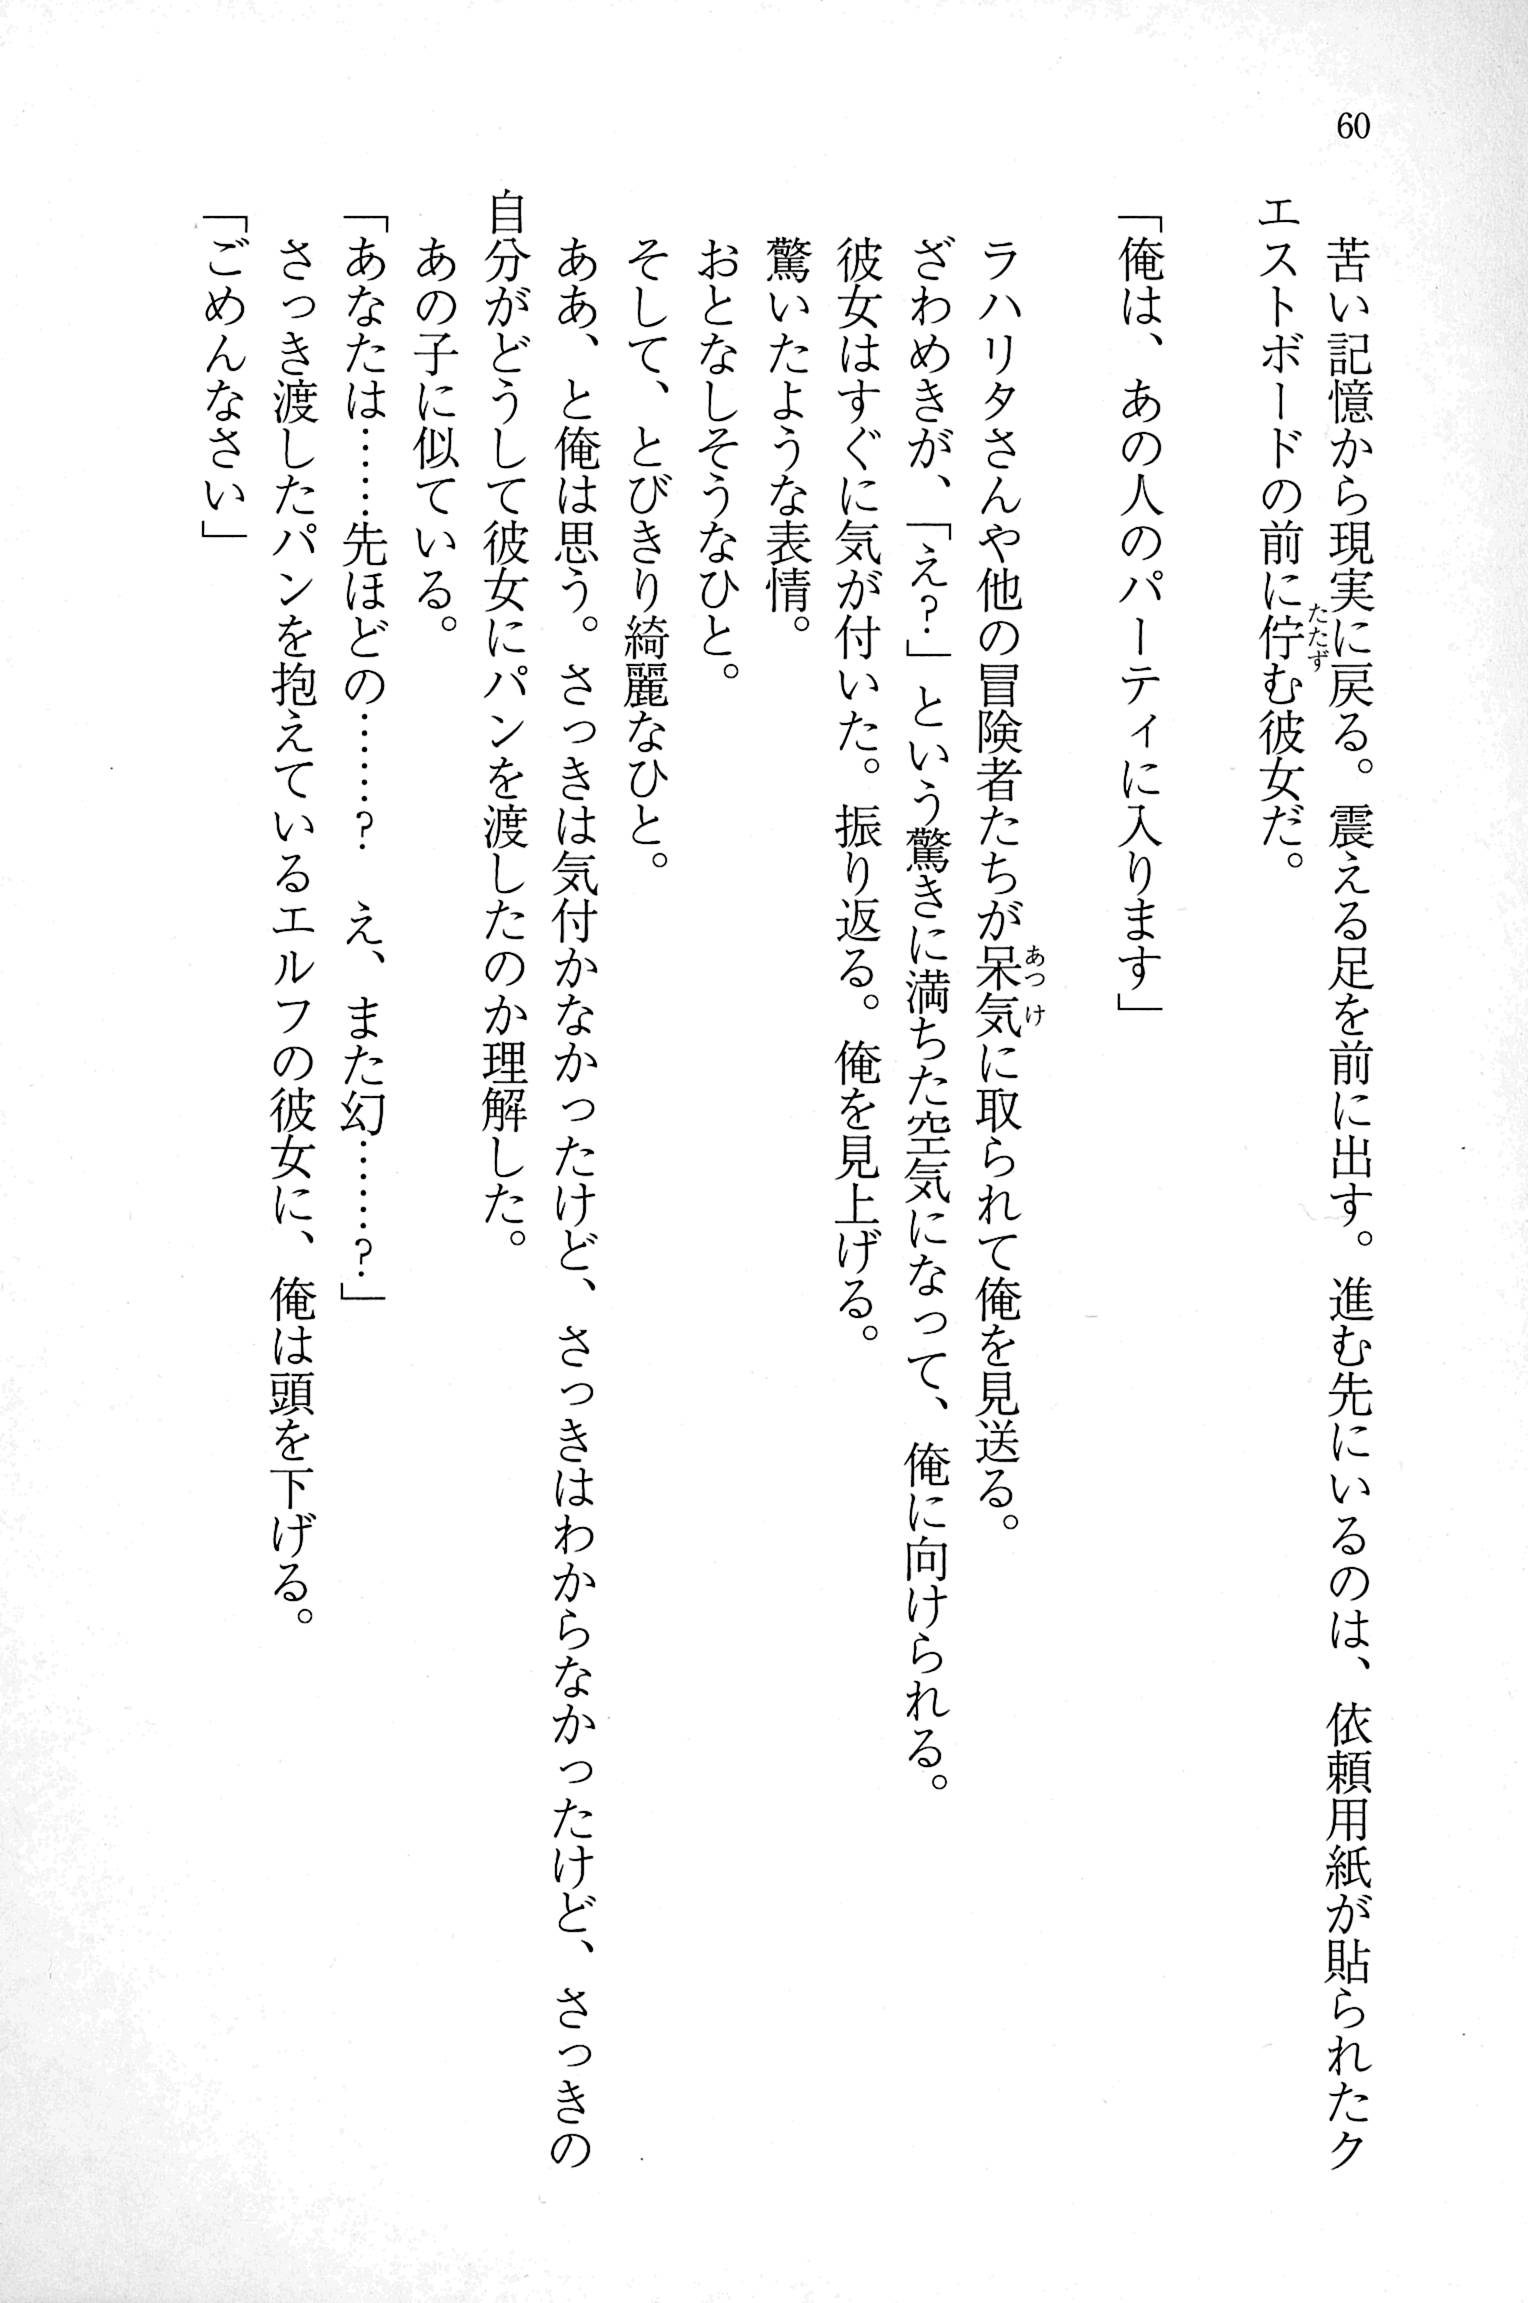 60
苦い記憶から現実に戻る。震える足を前に出す。進む先にいるのは、依頼用紙が貼られたク
エストボードの前に佇む彼女だ。
たたず
「俺は、あの人のパーティに入ります」
ラハリタさんや他の冒険者たちが呆気に取られて俺を見送る。
あっけ
ざわめきが、「え?」という驚きに満ちた空気になって、俺に向けられる。
彼女はすぐに気が付いた。振り返る。俺を見上げる。
驚いたような表情。
おとなしそうなひと。
そして、とびきり綺麗なひと。
ああ、と俺は思う。さっきは気付かなかったけど、さっきはわからなかったけど、さっきの
自分がどうして彼女にパンを渡したのか理解した。
あの子に似ている。
「あなたは……先ほどの……?　え、また幻……?」
さっき渡したパンを抱えているエルフの彼女に、俺は頭を下げる。
「ごめんなさい」